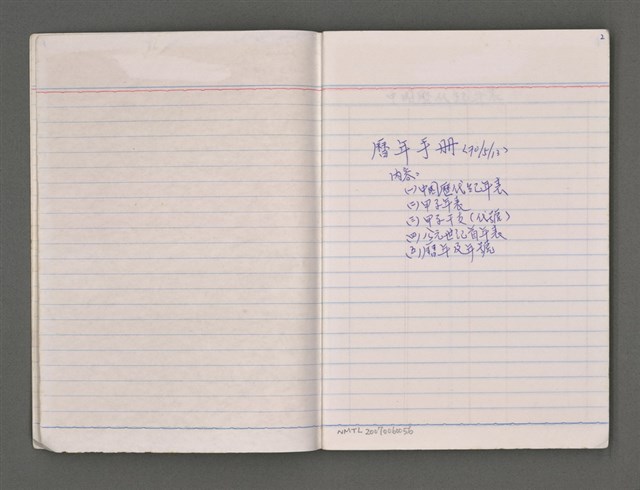 2
曆年手冊<70/5/15>
內容:
(一)中國歷代年表
(二)甲子年表
(三)甲子干支(代號)
(四)公元世紀首年表
(五)曆年及年號
NMTL 20070060056